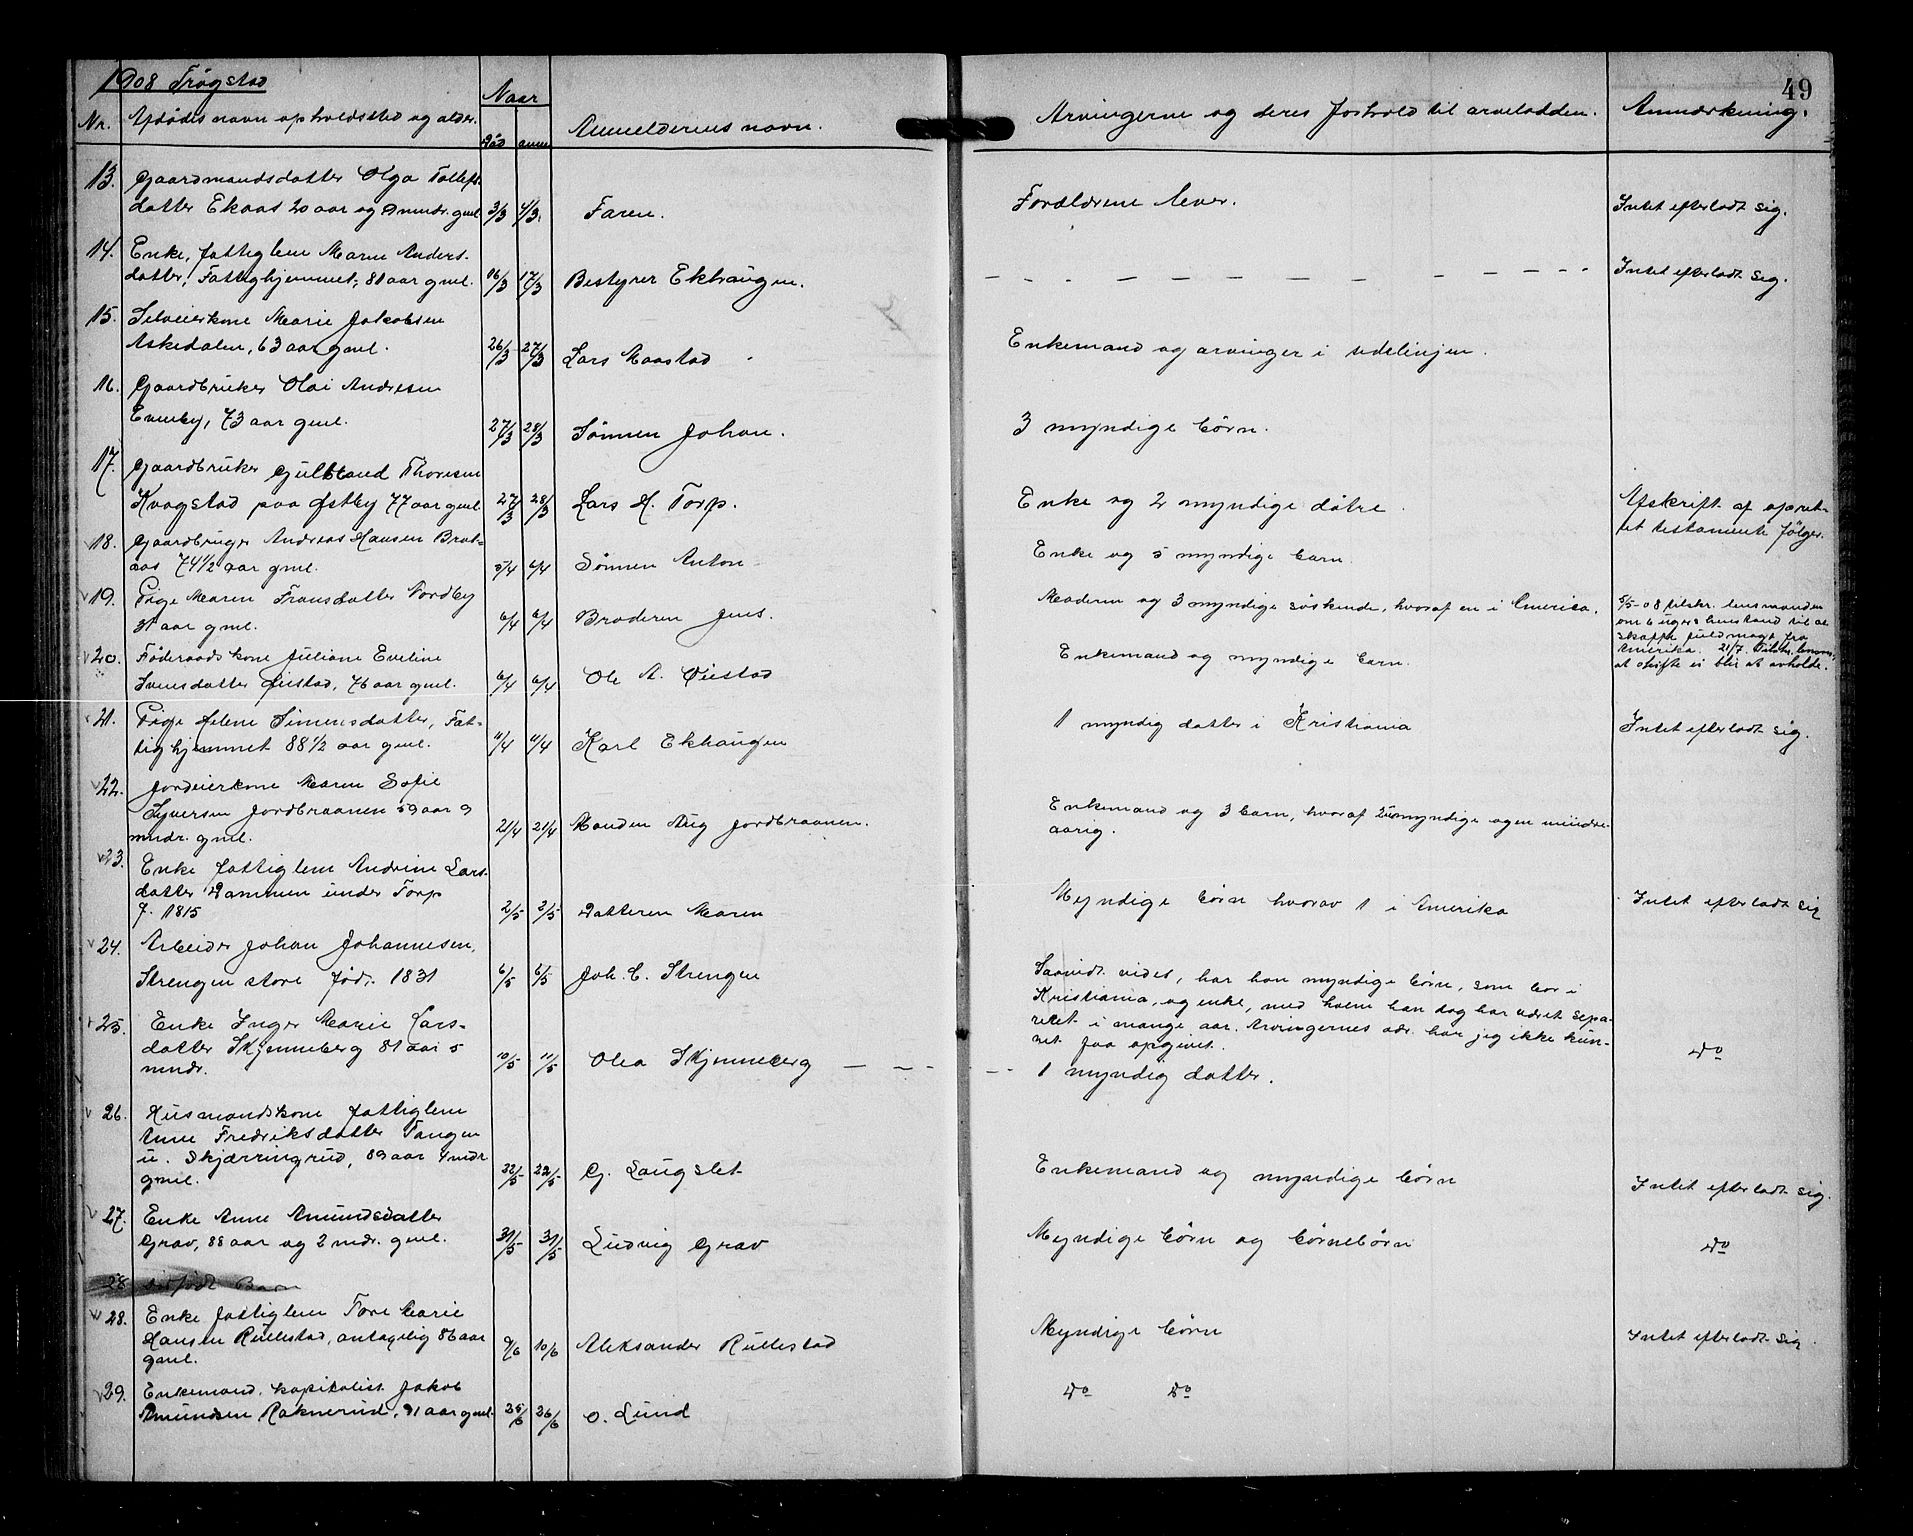 1908 Trøgstad
49
Nr. Afdødes navn opholdssted og alder. Naar Død anm Anmelderens navn. Arvingerne og deres forhold til arveladden. Anmærkning.
13. Gaardmandsdatter Olga Tollefs-
datter Ekaas 20 aar og 9 mndr. gml 3/3 4/3. Faren. Forældrene lever. Intet efterladt sig.
14. Enke, fattiglem Maren Anders-
datter, Fattighjemmet, 81 aar gml. 16/3 17/3 Bestyrer Ekhaugen. Intet efterladt sig.
15. Selveierkone Marie Jakobsen
Askedalen, 63 aar gml. 26/3 27/3 Lars Maastad Enkemand og arvinger i udelinjen.
16. Gaardbruker Olai Andresen
Eneby, 73 aar gml. 27/3 28/3 Sønnen Johan. 3 myndige børn.
17. Gaardbruker Gulbrand Thoresen
Kvagstad paa Østby 77 aar gml 27/3 28/3 Lars H. Torp. Enke og 2 myndige døtre. Afskrift af opret-
tet testamente følger.
18. Gaardbruger Andreas Hansen Brat-
aas 74 1/2 aar gml. 5/4 6/4 Sønnen Anton Enke og 5 myndige barn
19. Pige Maren Fransdatter Nordby
31 aar gml. 6/4 6/4 Broderen Jens. Moderen og 3 myndige søskende, hvoraf en i Amerika. 5/5-08 tilskr. lensmanden
om 6 ugers henstand til at
skaffe fuldmagt fra
Amerika. 21/7. Tilskr. lensm.
at skifte ei blir at avholde.
20. Føderaadskone Juliane Eveline
Svensdatter Øiestad, 76 aar gml. 6/4 6/4 Ole A. Øiestad Enkemand og myndige barn.
21. Pige Helene Simensdatter, Fat-
tighjemmet 88 1/2 aar gml. 11/4 11/4 Karl Ekhaugen 1 myndig datter i Kristiania Intet efterladt sig.
22. Jordeierkone Maren Sofie
Syversen Jordbraanen 59 aar 9
mndr. gml. 21/4 21/4 Manden Aug Jordbraanen. Enkemand og 3 barn, hvoraf 2 myndige og en mindre-
aarig.
23. Enke fattiglem Andrine Lars-
datter Dammen under Torp
f. 1815 2/5 3/5 Datteren Maren Myndige børn hvorav 1 i Amerika Intet efterladt sig
24. Arbeider Johan Johannesen,
Strengen store fød. 1831 6/5 6/5 Joh. C. Strengen Saavidt vides, har han myndige børn, som bor i
Kristiania, og enke, med hvem han dog har været sepa-
reret i mange aar. Arvingernes adr. har jeg ikke kun-
net faa opgivet. do
25. Enke Inger Marie Lars-
datter Skjenneberg 81 aar 5
mndr. 10/5 11/5 Olea Skjenneberg 1 myndig datter.
26. Husmandskone fattiglem
Anne Fredriksdatter Tangen
u. Skjærringrud, 89 aar 4 mdr
gml. 22/5 22/5 G. Laugslet Enkemand og myndige børn Intet efterladt sig.
27. Enke Anne Amundsdatter
Grav, 88 aar og 2 mdr. gml. 31/5 31/5 Ludvig Grav Myndige børn og børnebørn do
28 Barn
28. Enke fattiglem Tore Marie
Hansen Rullestad, antagelig 86 aar
gml. 9/6 10/6 Aleksander Rullestad Myndige børn Intet efterladt sig.
29. Enkemand, kapitalist Jakob
Amundsen Raknerud, 91 aar gml. 25/6 26/6 O. Lund do do